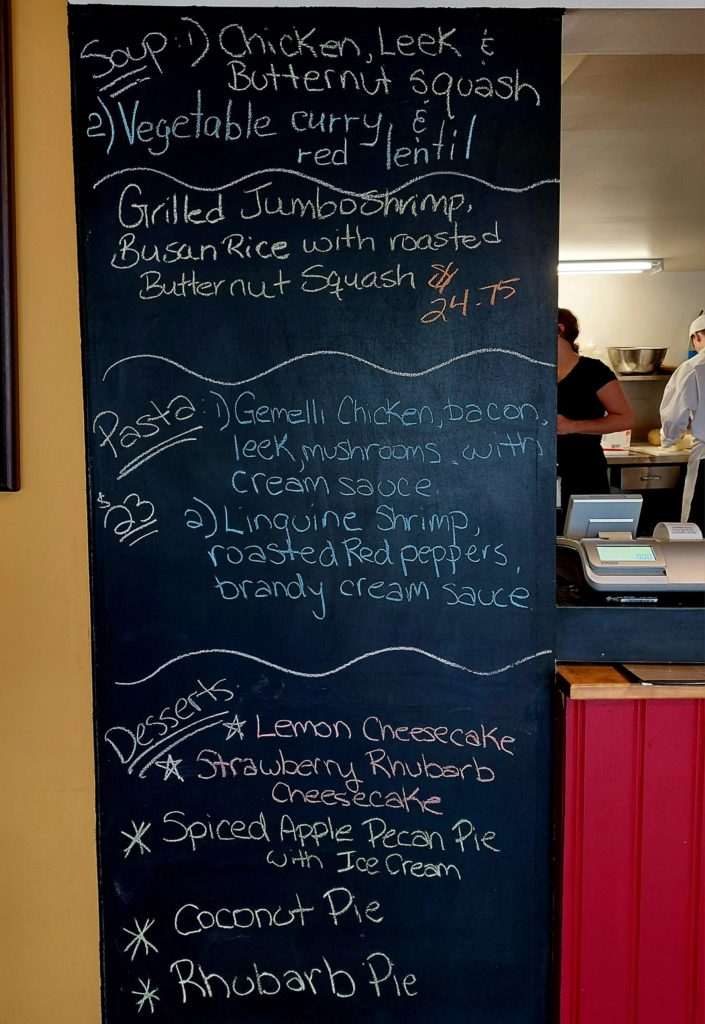 Soup: 1) Chicken, Leek &
Butternut squash
2) Vegetable curry &
red lentil
Grilled Jumbo Shrimp,
Busan Rice with roasted
Butternut Squash $
24.75
Pasta: 1) Gemelli Chicken, bacon,
leek, mushrooms, with
cream sauce.
$23
2) Linguine Shrimp,
roasted Red peppers,
brandy cream sauce
Desserts:
☆ Lemon Cheesecake
☆ Strawberry Rhubarb
Cheesecake
* Spiced Apple Pecan Pie
with Ice Cream
* Coconut Pie
* Rhubarb Pie
0.00